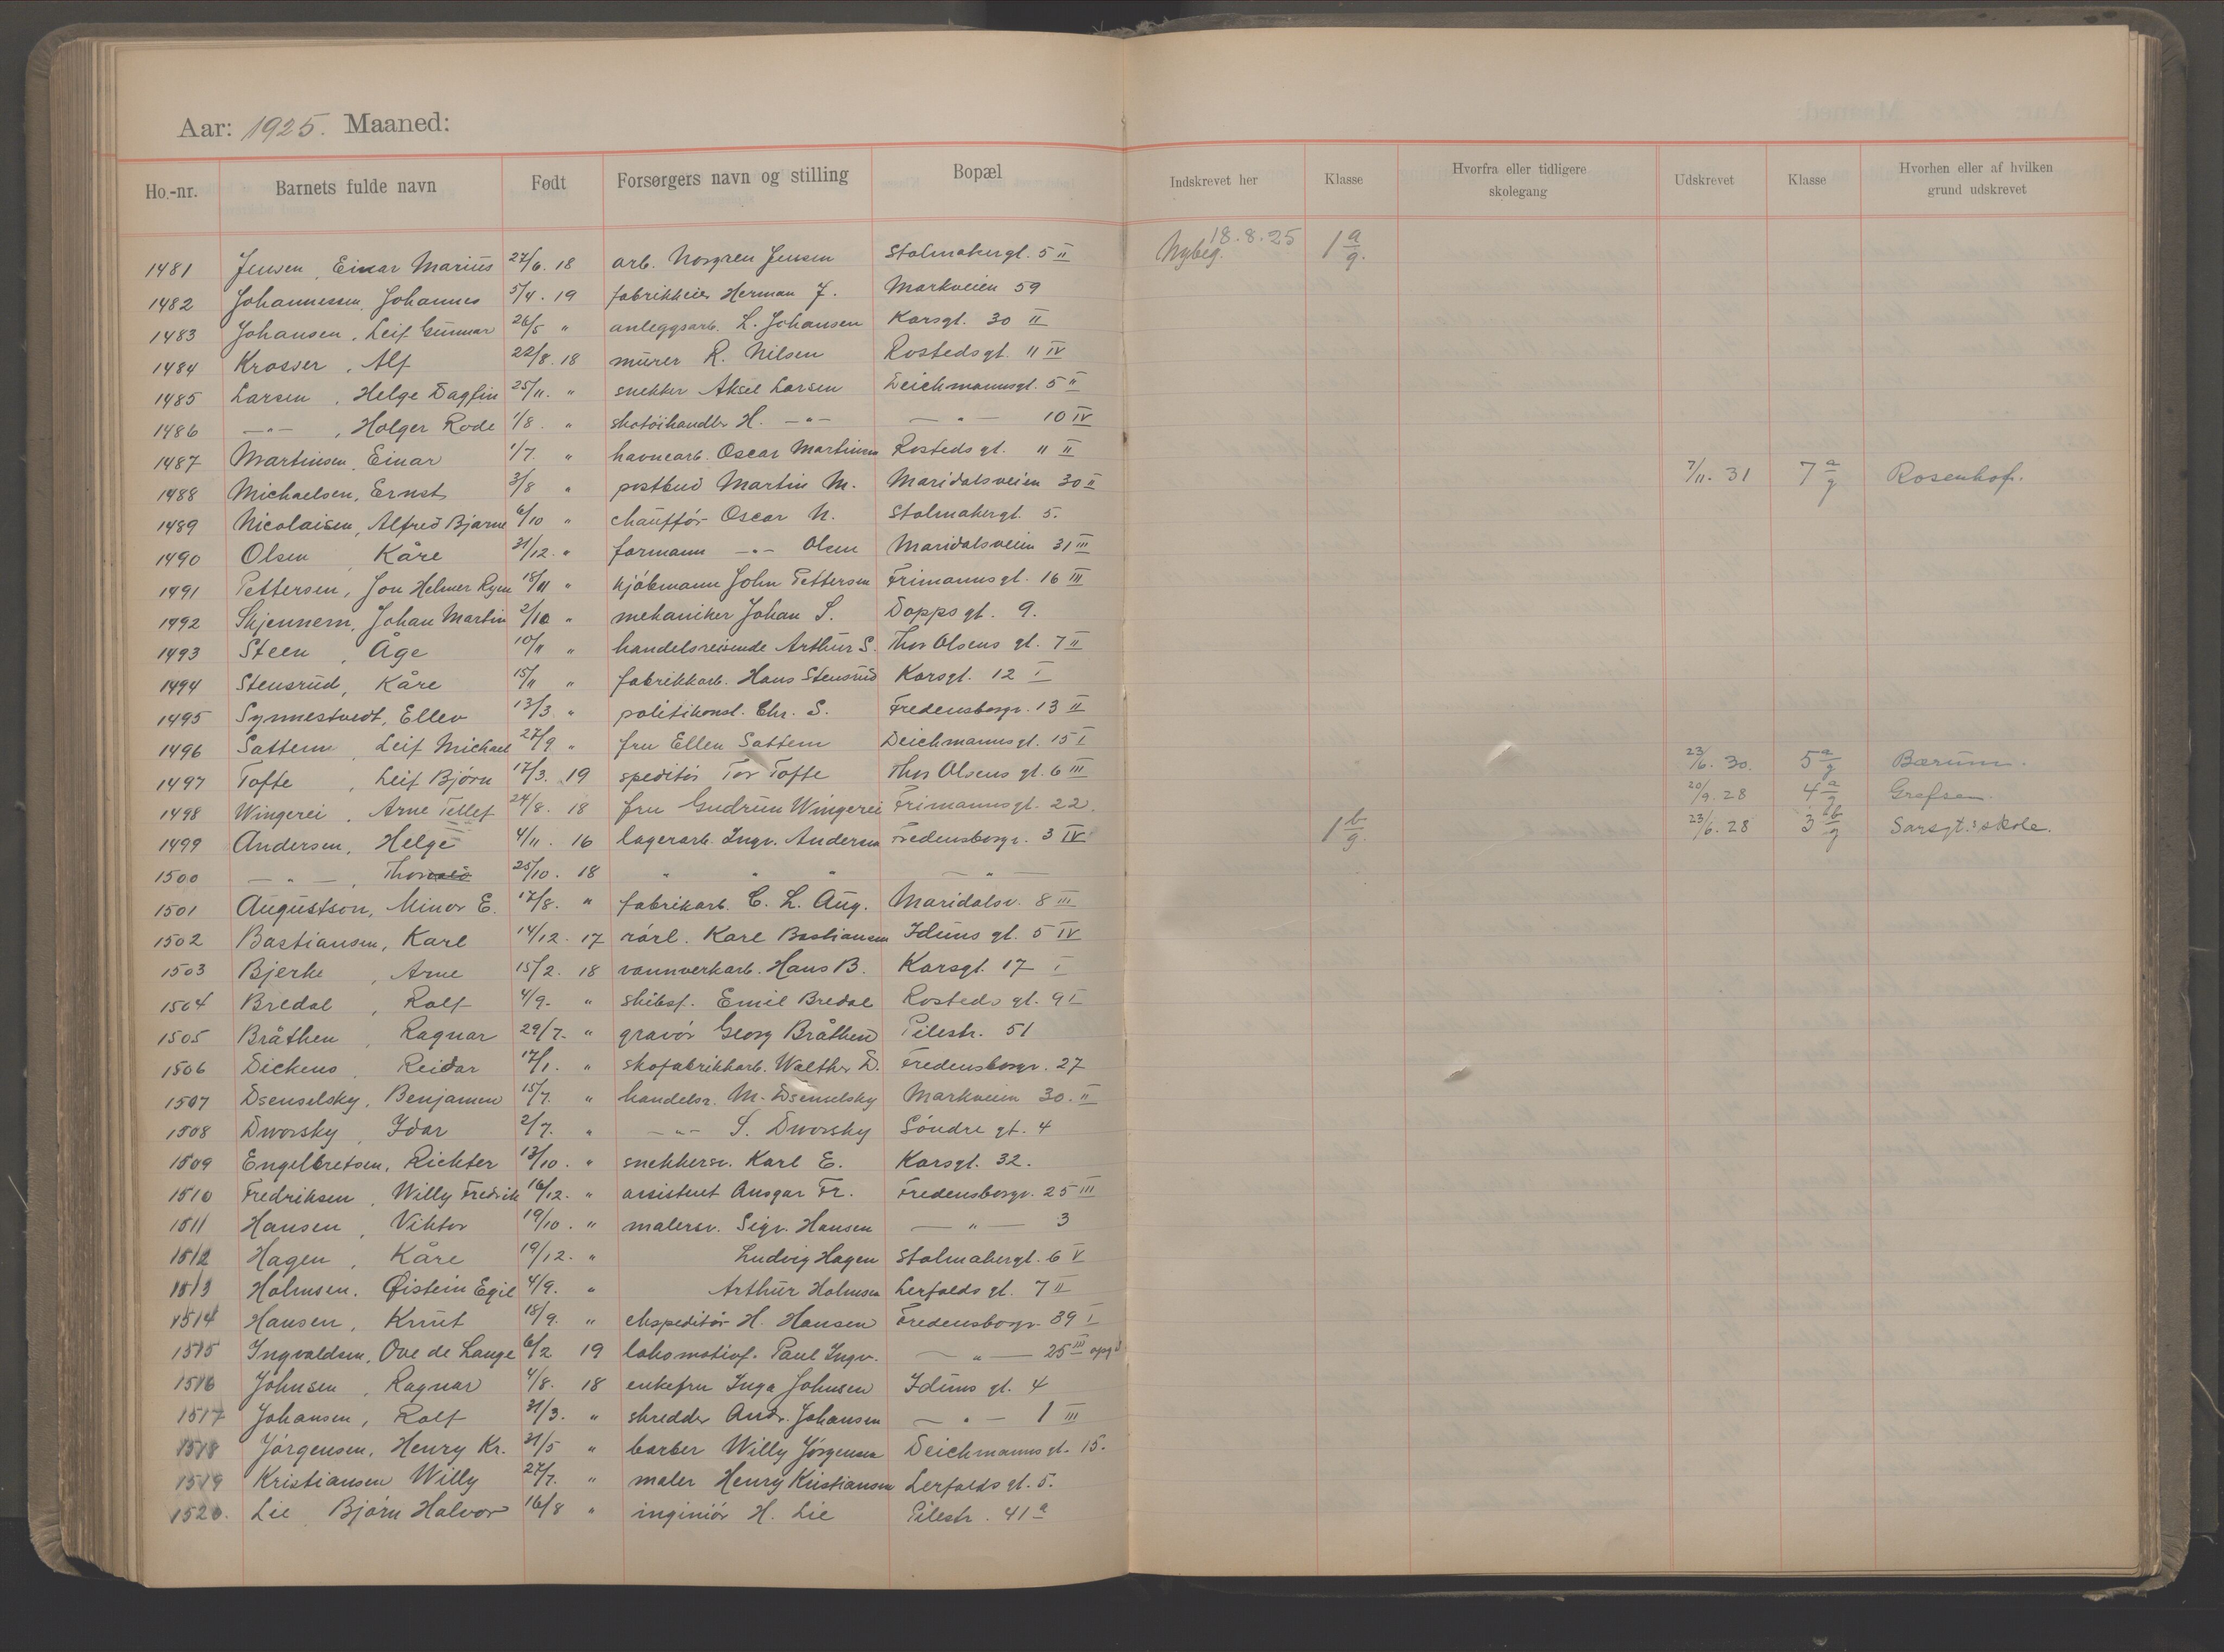 Aar: 1925. Maaned:
Ho.-nr. Barnets fulde navn Født Forsørgers navn og stilling Bopæl Indskrevet her Klasse Hvorfra eller tidligere skolegang Udskrevet Klasse Hvorhen eller af hvilken grund udskrevet
1481 Jensen, Einar Marius 27/6. 18 arb. Jensen Stolmakergt. 5 II Nybeg. 18.8.25 1 a/g.
1482 Johannessen, Johannes 5/4. 19 fabrikkeier Herman J. Markveien 59
1483 Johansen, Leif Gunnar 26/5 " anleggsarb. L. Johansen Korsgt. 30 II
1484 Krosser, Alf 22/8. 18 murer R. Nilsen Rostedsgt. 11 IV
1485 Larsen, Helge Dagfin 25/11. " snekker Aksel Larsen Deichmannsgt. 5 II
1486 — " —, Holger Rode 1/8. " skotöihandler H. — " — — " — 10 IV
1487 Martinsen, Einar 1/7. " havnearb. Oscar Martinsen Rosteds gt. 11 II
1488 Michaelsen, Ernst 3/8 " postbud Martin M. Maridalsveien 30 II 7/11. 31 7 a/g Rosenhof.
1489 Nicolaisen, Alfred Bjarne 6/10 " chaufför Oscar N. Stolmakergt. 5.
1490 Olsen, Kåre 31/12. " formann — " — Olsen Maridalsveien 31 III
1491 Pettersen, Jon Helmer 18/11 " kjöbmann John Pettersen Frimannsgt. 16 III
1492 Skjennem, Johan Martin 2/10 " mekaniker Johan S. Dopps gt. 9.
1493 Steen, Åge 10/11 " handelsreisende Arthur S. Thor Olsens gt. 7 II
1494 Stensrud, Kåre 15/11 " fabrikkarb. Hans Stensrud Korsgt. 12 I
1495 Synnestvedt, Ellev 13/3. " politikonst. Chr. S. Fredensborgv. 13 II
1496 Sattem, Leif Michael 27/9. " fru Ellen Sattem Deichmannsgt. 15 I
1497 Tofte, Leif Björn 17/3. 19 speditör Tor Tofte Thor Olsens gt. 6 III 23/6. 30. 5 a/g Bærum.
1498 Wingerei, Arne Tellef 24/8. 18 fru Gudrun Wingerei Frimannsgt. 22. 20/9. 28 4 a/g Grefsen.
1499 Andersen, Helge 4/11. 16 lagerarb. Ingv. Andersen Fredensborgv. 3 IV 1 b/g. 23/6. 28 3 b/g Sarsgt.s skole.
1500 — " —, Thorvald 25/10. 18 " " " — " —
1501 Augustson, Minor E. 17/8. " fabrikarb. C. L. Aug. Maridalsv. 8 III
1502 Bastiansen, Karl 14/12. 17 rörl. Karl Bastiansen Iduns gt. 5 IV
1503 Bjerke, Arne 15/2. 18 vannverkarb. Hans B. Korsgt. 17 I
1504 Bredal, Rolf 4/9. " skibsf. Emil Bredal Rosteds gt. 9 I
1505 Bråthen, Ragnar 29/7. " gravör Georg Bråthen Pilestr. 51
1506 Dickens, Reidar 17/1. " skofabrikkarb. Walther D. Fredensborgv. 27
1507 Dsenselsky, Benjamin 15/7. " handelsr. M. Dsenselsky Markveien 30. II
1508 Dworsky, Idar 2/7. " — " — S. Dworsky Söndre gt. 4
1509 Engelbretsen, Richter 13/10. " snekkersv. Karl E. Korsgt. 32.
1510 Fredriksen, Willy Fredrik 16/12. " assistent Ansgar Fr. Fredensborgv. 25 III
1511 Hansen, Viktor 19/10. " malersv. Sigv. Hansen — " — 3
1512 Hagen, Kåre 19/12. " Ludvig Hagen Stolmakergt. 6 V
1513 Holmsen. Øistein Egil 4/9. " Arthur Holmsen Lerfalds gt. 7 II
1514 Hansen, Knut 18/9. " ekspeditör H. Hansen Fredensborgv. 39 I
1515 Ingvaldsen, Ove de Lange 6/2 19 lokomotivf. Paul Ingv. — " — 25 III opg
1516 Johnsen, Ragnar 4/8. 18 enkefru Inga Johnsen Iduns gt. 4
1517 Johansen, Rolf 31/3. " skredder Andr. Johansen — " — 1 III
1518 Jörgensen, Henry Kr. 31/5 " barber Willy Jörgensen Deichmanns gt. 15.
1519 Kristiansen Willy 27/7. " maler Henry Kristiansen Lerfalds gt. 5.
1520. Lie Björn Halvor 16/8 " inginiör H. Lie Pilestr. 41 a